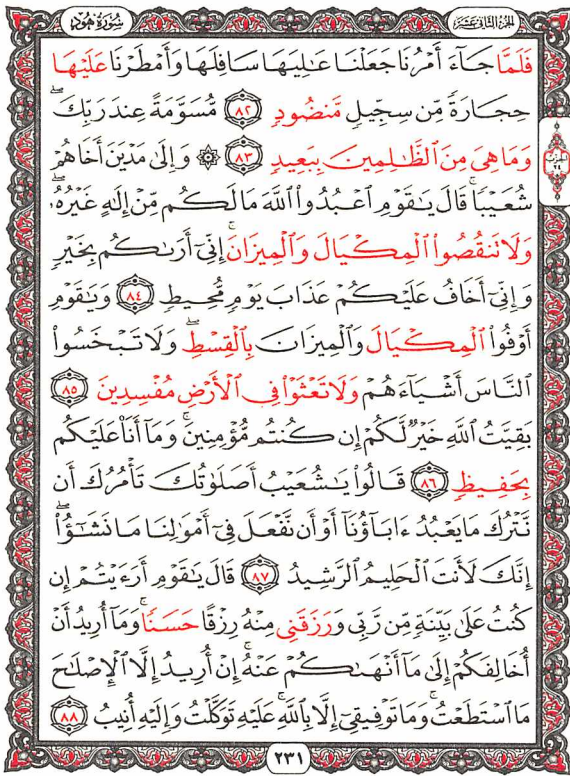 سُورَةُ هُودٍ الجزء الثاني عشر
فَلَمَّا جَآءَ أَمْرُنَا جَعَلْنَا عَٰلِيَهَا سَافِلَهَا وَأَمْطَرْنَا عَلَيْهَا
حِجَارَةً مِّن سِجِّيلٍ مَّنضُودٍ ٨٢ مُّسَوَّمَةً عِندَ رَبِّكَۖ
وَمَا هِىَ مِنَ ٱلظَّٰلِمِينَ بِبَعِيدٍ ٨٣ ۞ وَإِلَىٰ مَدْيَنَ أَخَاهُمْ
الحزب ٢٤
شُعَيْبًاۚ قَالَ يَٰقَوْمِ ٱعْبُدُوا۟ ٱللَّهَ مَا لَكُم مِّنْ إِلَٰهٍ غَيْرُهُۥۖ
وَلَا تَنقُصُوا۟ ٱلْمِكْيَالَ وَٱلْمِيزَانَۚ إِنِّىٓ أَرَىٰكُم بِخَيْرٍ
وَإِنِّىٓ أَخَافُ عَلَيْكُمْ عَذَابَ يَوْمٍ مُّحِيطٍ ٨٤ وَيَٰقَوْمِ
أَوْفُوا۟ ٱلْمِكْيَالَ وَٱلْمِيزَانَ بِٱلْقِسْطِۖ وَلَا تَبْخَسُوا۟
ٱلنَّاسَ أَشْيَآءَهُمْ وَلَا تَعْثَوْا۟ فِى ٱلْأَرْضِ مُفْسِدِينَ ٨٥
بَقِيَّتُ ٱللَّهِ خَيْرٌ لَّكُمْ إِن كُنتُم مُّؤْمِنِينَۚ وَمَآ أَنَا۠ عَلَيْكُم
بِحَفِيظٍ ٨٦ قَالُوا۟ يَٰشُعَيْبُ أَصَلَوٰتُكَ تَأْمُرُكَ أَن
نَّتْرُكَ مَا يَعْبُدُ ءَابَآؤُنَآ أَوْ أَن نَّفْعَلَ فِىٓ أَمْوَٰلِنَا مَا نَشَٰٓؤُا۟ۖ
إِنَّكَ لَأَنتَ ٱلْحَلِيمُ ٱلرَّشِيدُ ٨٧ قَالَ يَٰقَوْمِ أَرَءَيْتُمْ إِن
كُنتُ عَلَىٰ بَيِّنَةٍ مِّن رَّبِّى وَرَزَقَنِى مِنْهُ رِزْقًا حَسَنًاۚ وَمَآ أُرِيدُ أَنْ
أُخَالِفَكُمْ إِلَىٰ مَآ أَنْهَىٰكُمْ عَنْهُۚ إِنْ أُرِيدُ إِلَّا ٱلْإِصْلَٰحَ
مَا ٱسْتَطَعْتُۚ وَمَا تَوْفِيقِىٓ إِلَّا بِٱللَّهِۚ عَلَيْهِ تَوَكَّلْتُ وَإِلَيْهِ أُنِيبُ ٨٨
٢٣١